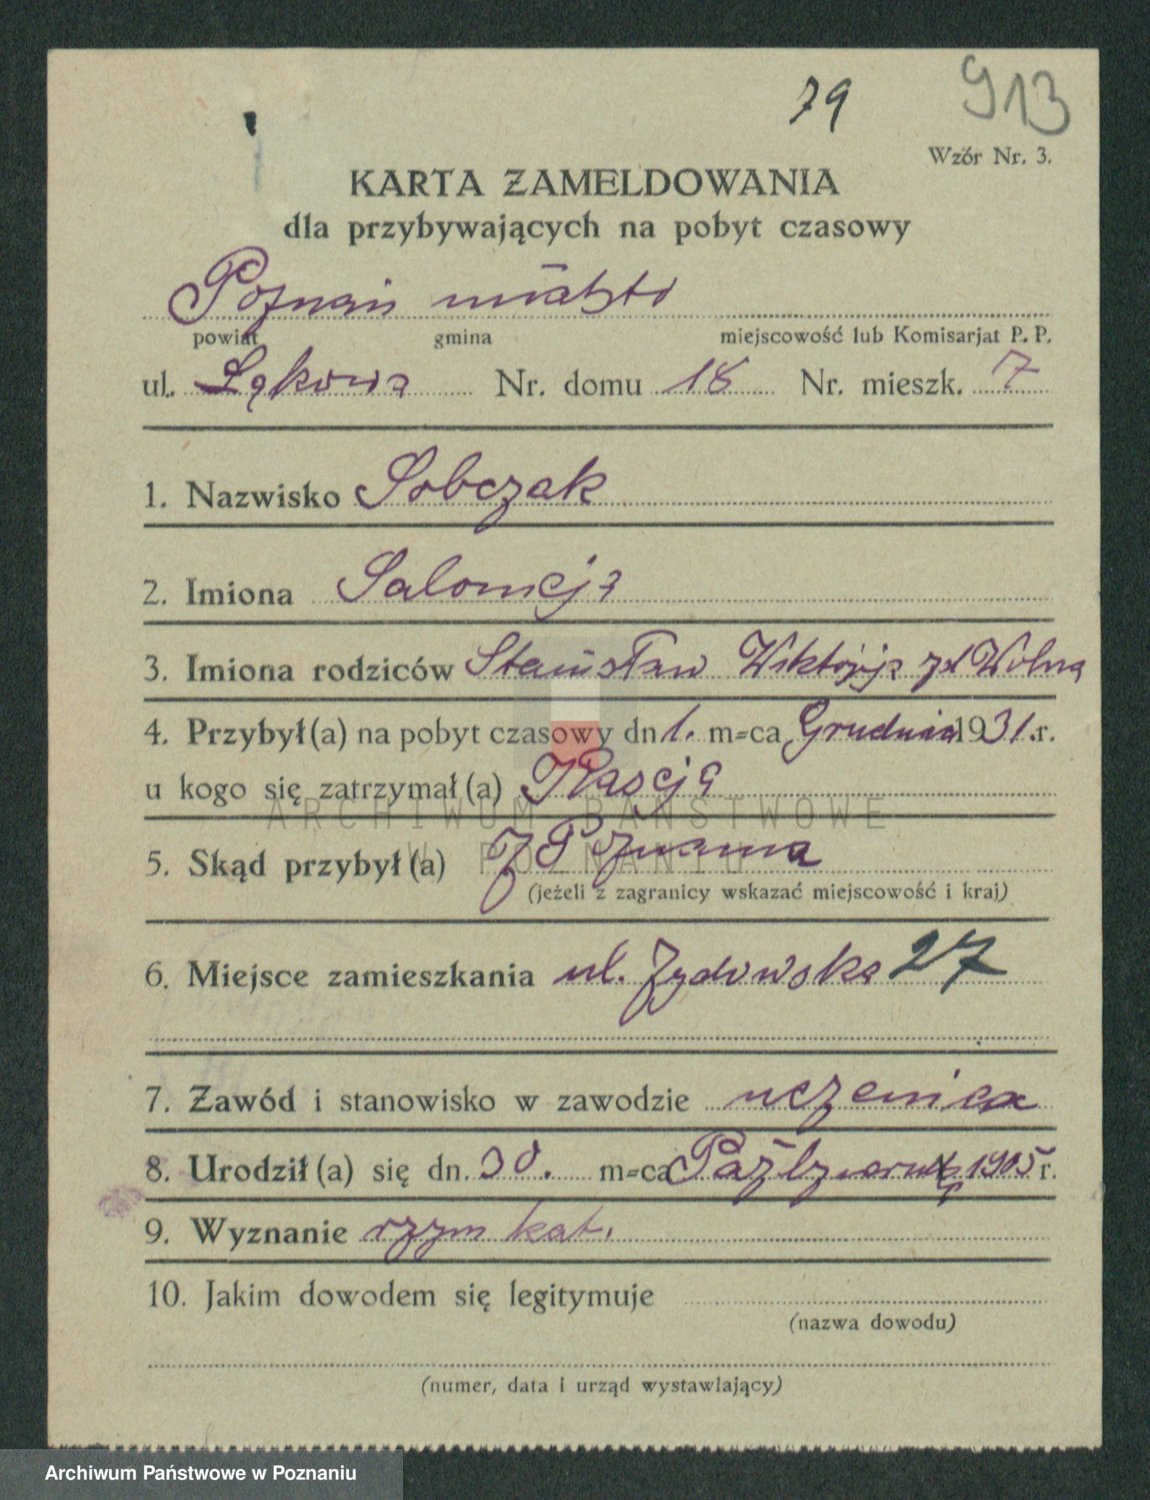 79 913
Wzór Nr. 3.
KARTA ZAMELDOWANIA
dla przybywających na pobyt czasowy
Poznań miasto
powiat gmina miejscowość lub Komisarjat P. P.
ul. Łąkowa Nr. domu 18 Nr. mieszk. 7
1. Nazwisko Sobczak
2. Imiona Salomeja
3. Imiona rodziców Stanisław Wiktorja zd Wolna
4. Przybył(a) na pobyt czasowy dn 1. m-ca Grudnia 1931.r.
u kogo się zatrzymał(a)
ARCHIWUM PAŃSTWOWE
5. Skąd przybył(a) Z Poznania
W POZNANIU
(jeżeli z zagranicy wskazać miejscowość i kraj)
6. Miejsce zamieszkania ul. Żydowska 27
7. Zawód i stanowisko w zawodzie uczenica
8. Urodził(a) się dn. 30. m-ca 1905 r.
9. Wyznanie rzym kat.
10. Jakim dowodem się legitymuje
(nazwa dowodu)
(numer, data i urząd wystawiający)
Archiwum Państwowe w Poznaniu